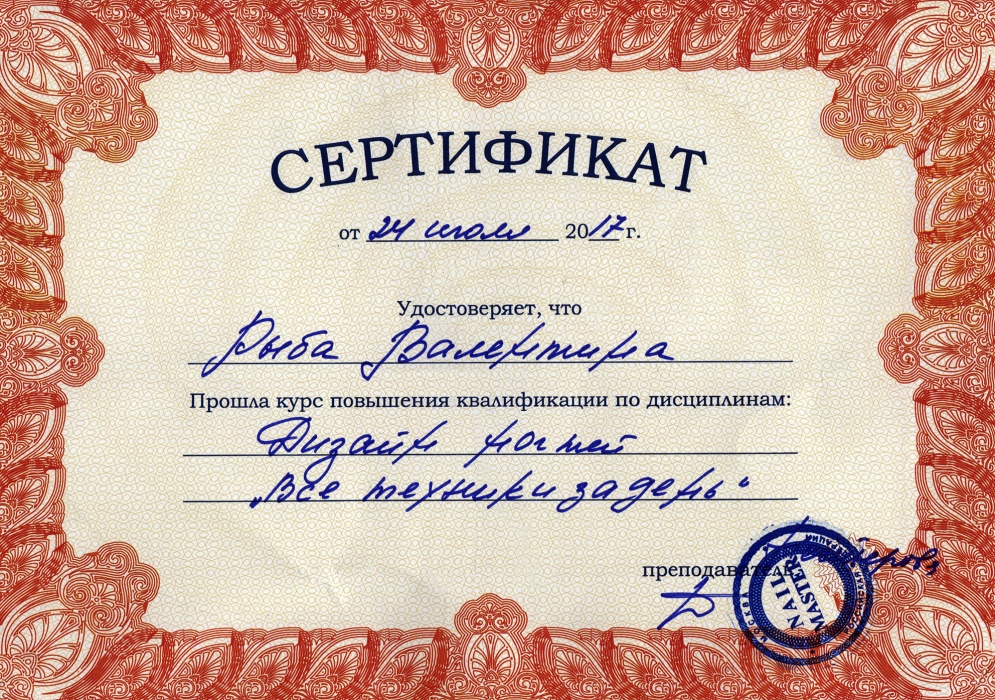 СЕРТИФИКАТ
от 24 июля 2017 г.
Удостоверяет, что
Рыба Валентина
Прошла курс повышения квалификации по дисциплинам:
Дизайн ногтей
„Все техники за день“
преподаватель
NAIL
MASTER
МОСКВА